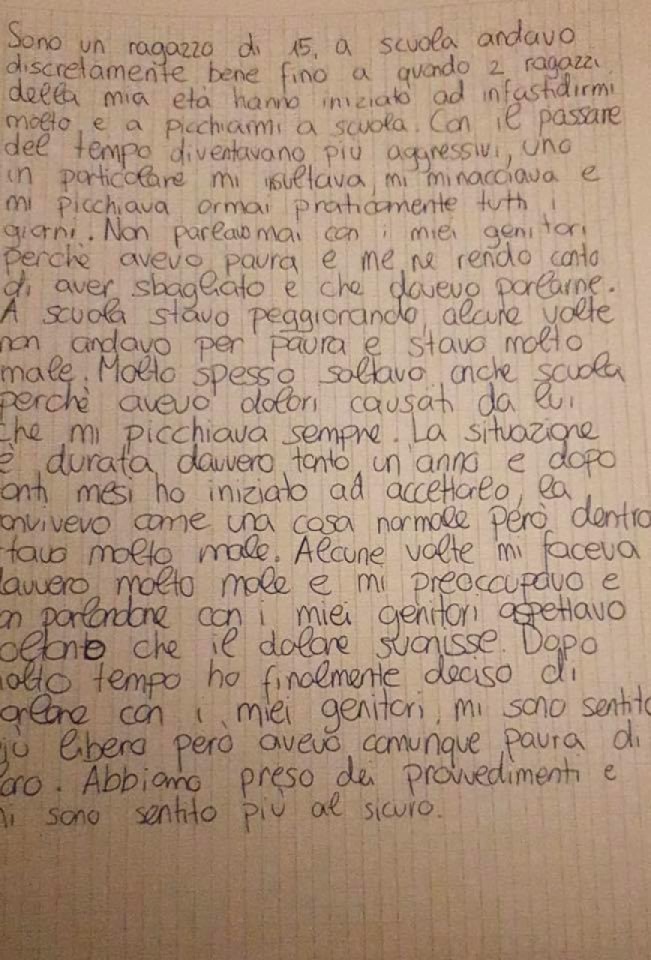 Sono un ragazzo di 15, a scuola andavo
discretamente bene fino a quando 2 ragazzi
della mia età hanno iniziato ad infastidirmi
molto e a picchiarmi a scuola. Con il passare
del tempo diventavano più aggressivi, uno
in particolare mi insultava, mi minacciava e
mi picchiava ormai praticamente tutti i
giorni. Non parlavo mai con i miei genitori
perchè avevo paura e me ne rendo conto
di aver sbagliato e che dovevo parlarne.
A scuola stavo peggiorando, alcune volte
non andavo per paura e stavo molto
male. Molto spesso saltavo anche scuola
perchè avevo dolori causati da lui
che mi picchiava sempre. La situazione
è durata davvero tanto, un anno e dopo
anti mesi ho iniziato ad accettarlo, la
onvivevo come una cosa normale però dentro
tavo molto male. Alcune volte mi faceva
avvero molto male e mi preoccupavo e
on parlandone con i miei genitori aspettavo
oltanto che il dolore svanisse. Dopo
olto tempo ho finalmente deciso di
arlare con i miei genitori, mi sono sentito
iù libero però avevo comunque paura di
oro. Abbiamo preso dei provvedimenti e
i sono sentito più al sicuro.